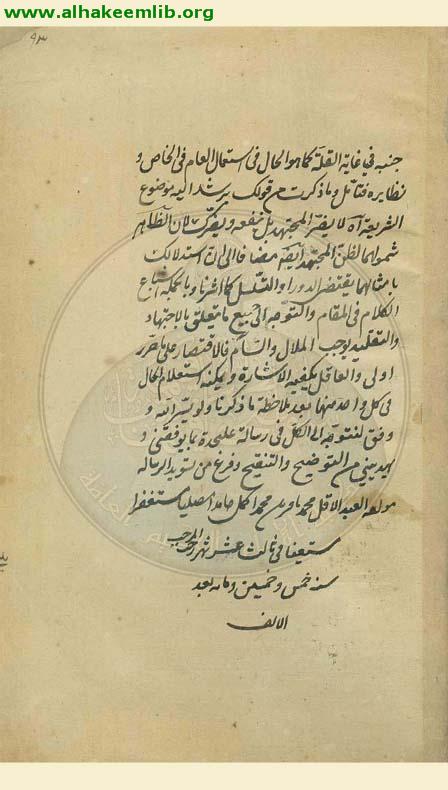 www.alhakeemlib.org
٩٣
جنبه في غاية القلة كما هو الحال في استعمال العام في الخاص و
نظايره فتأمل وما ذكرت من قولك يرشد اليه موضوع
الشريعة آه لا يضر المجتهد بل ينفعه ويضرك لان الظاهر
شمولها لظن المجتهد ايضا مضافا الى ان استدلالك
بامثالها يقتضى الدور او التسلسل كما اشرنا وبالجملة اشباع
الكلام في المقام والتوجه الى جميع ما يتعلق بالاجتهاد
والتقليد يوجب الملال والسآم فالاقتصار على ما حرر
اولى والعاقل يكفيه الاشارة ويمكنه استعلام الحال
في كل واحد منها بعد ملاحظة ما ذكرنا ولو يسر الله و
وفق لنتوجه الى الكل في رسالة عليحدة بما يوفقني و
يهديني من التوضيح والتنقيح وفرغ من تسويد الرسالة
مولفه العبد الاقل محمد باقر بن محمد اكمل حامدا مصليا مستغفرا
في ثالث عشر شهر رجب المرجب
سنه خمس وخمسين ومائه بعد
الالف